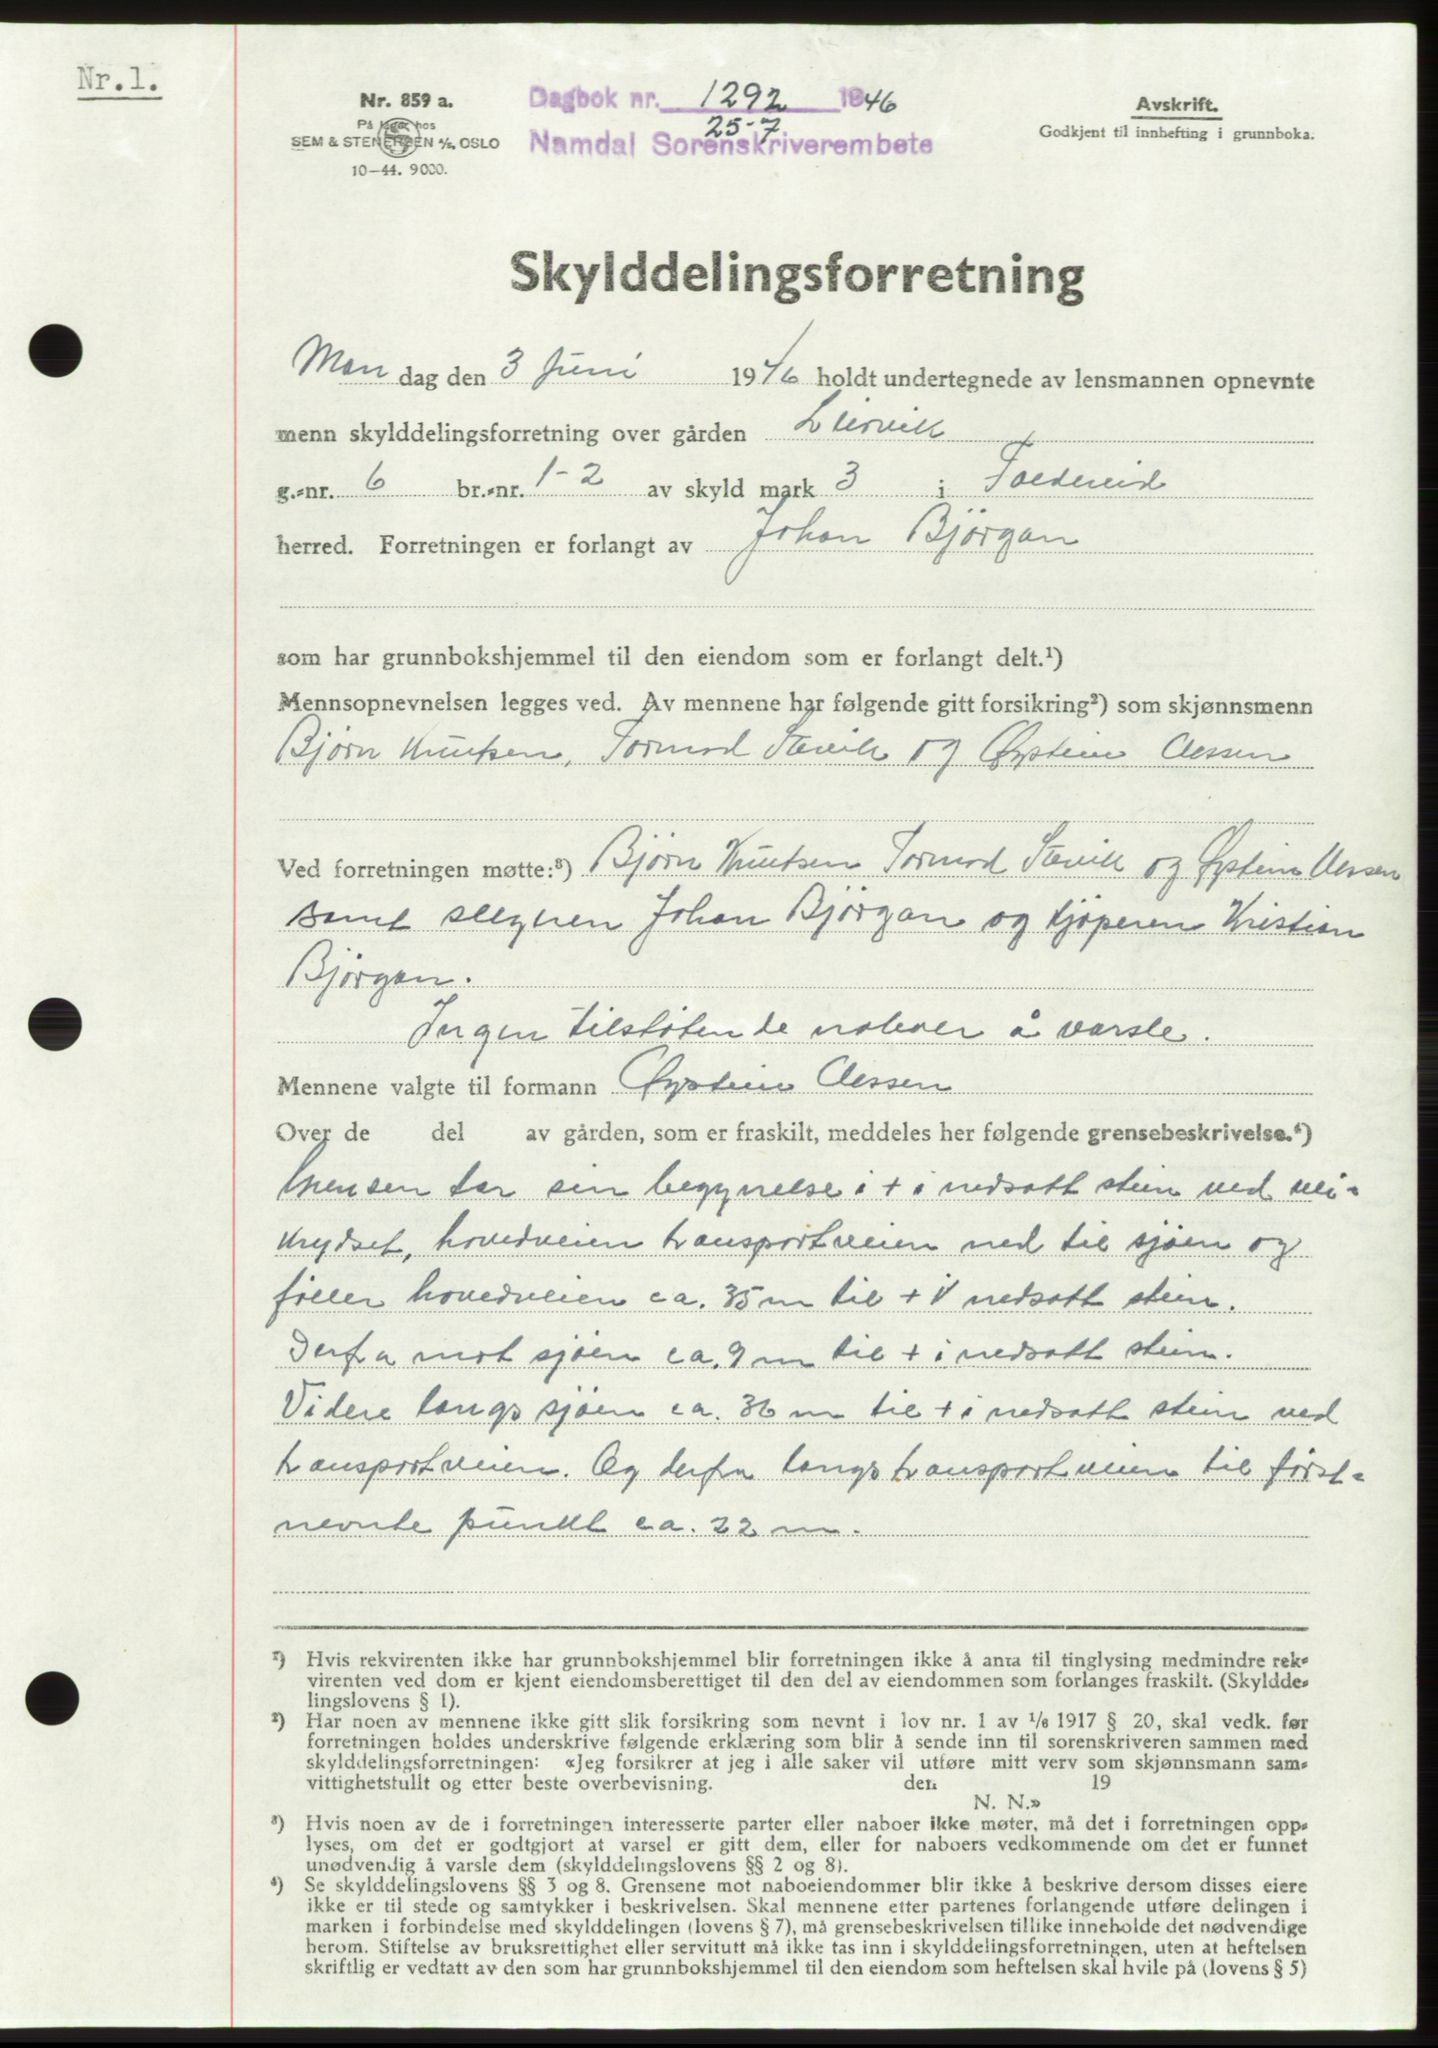 Nr. 1.
Nr. 859 a.
På lager hos
SEM & STENERSEN A/S, OSLO
10-44. 9000.
Dagbok nr. 1292 1946
25-7
Namdal Sorenskriverembete
Avskrift.
Godkjent til innhefting i grunnboka.
Skylddelingsforretning
Man dag den 3 Juni 1946 holdt undertegnede av lensmannen opnevnte
menn skylddelingsforretning over gården Liervik
g.-nr. 6 br.-nr. 1-2 av skyld mark 3 i Foldereid
herred. Forretningen er forlangt av Johan Bjørgan
som har grunnbokshjemmel til den eiendom som er forlangt delt.¹)
Mennsopnevnelsen legges ved. Av mennene har følgende gitt forsikring²) som skjønnsmenn
Bjørn Knutsen, Tormod og Øystein Aessen
Ved forretningen møtte:³) Bjørn Knutsen Tormod og Øystein Aessen
samt selgeren Johan Bjørgan og kjøperen Kristian
Bjørgan.
Ingen tilstøtende naboer å varsle.
Mennene valgte til formann Øystein Aessen
Over de del av gården, som er fraskilt, meddeles her følgende grensebeskrivelse.⁴)
Grensen tar sin begynnelse i + i nedsatt stein ved vei-
krydset, hovedveien transportveien ned til sjøen og
føller hovedveien ca. 35 m til + i nedsatt stein.
Derfra mot sjøen ca. 9 m til + i nedsatt stein.
Videre langs sjøen ca. 36 m til + i nedsatt stein ved
transportveien. Og derfra langs transportveien til først-
nevnte punkt ca. 22 m.
¹) Hvis rekvirenten ikke har grunnbokshjemmel blir forretningen ikke å anta til tinglysing medmindre rek-
virenten ved dom er kjent eiendomsberettiget til den del av eiendommen som forlanges fraskilt. (Skyldde-
lingslovens § 1).
²) Har noen av mennene ikke gitt slik forsikring som nevnt i lov nr. 1 av ¹/₆ 1917 § 20, skal vedk. før
forretningen holdes underskrive følgende erklæring som blir å sende inn til sorenskriveren sammen med
skylddelingsforretningen: «Jeg forsikrer at jeg i alle saker vil utføre mitt verv som skjønnsmann sam-
vittighetsfullt og etter beste overbevisning. den 19
N. N.»
³) Hvis noen av de i forretningen interesserte parter eller naboer ikke møter, må det i forretningen opp-
lyses, om det er godtgjort at varsel er gitt dem, eller for naboers vedkommende om det er funnet
unødvendig å varsle dem (skylddelingslovens §§ 2 og 8).
⁴) Se skylddelingslovens §§ 3 og 8. Grensene mot naboeiendommer blir ikke å beskrive dersom disses eiere
ikke er til stede og samtykker i beskrivelsen. Skal mennene etter partenes forlangende utføre delingen i
marken i forbindelse med skylddelingen (lovens § 7), må grensebeskrivelsen tillike inneholde det nødvendige
herom. Stiftelse av bruksrettighet eller servitutt må ikke tas inn i skylddelingsforretningen, uten at heftelsen
skriftlig er vedtatt av den som har grunnbokshjemmel til den eiendom som heftelsen skal hvile på (lovens § 5)